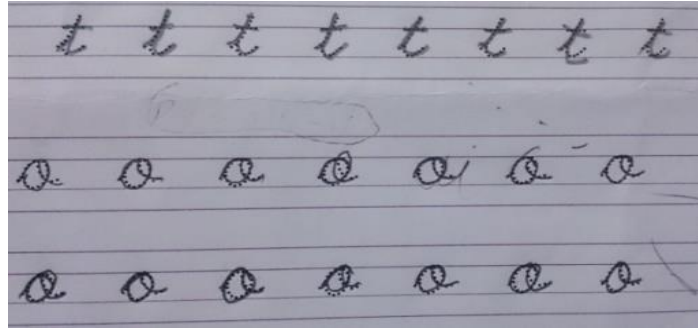 t t t t t t t t
o o o o o o o
o o o o o o o